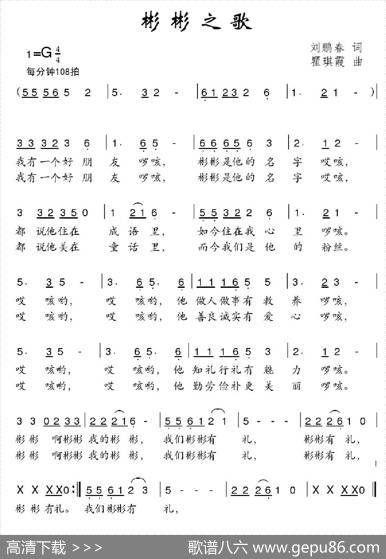 彬彬之歌
1=G 4/4
刘鹏春 词
每分钟108拍
瞿琪霞 曲
(5 5 5 5 6 5 2 | 5. 3 2 - | 6 1 2 3 2 6 | 1. 2 1 -) |
3 3 3 3 2 3 6 | 1. 6 5 - | 6 5 6 1 2 3 2 | 3. 5 3 - |
我有一个好朋友 啰咳, 彬彬是他的名字 哎咳,
我有一个好朋友 啰咳, 彬彬是他的名字 哎咳,
3 3 2 3 5 0 | 1 2 1 6 - | 5 5 3 2 2 6 | 1. 6 5 - |
都 说他住在 成语里, 如今住在我心里 啰咳。
都 说他美在 童话里, 而今我们是他的粉丝。
5. 3 5 - | 3. 6 5. 6 | 1 1 1 6 5 5 | 5. 3 2 - |
哎 咳哟, 哎 咳哟, 他 做人做事有教养 啰咳,
哎 咳哟, 哎 咳哟, 他 善良诚实有爱心 啰咳,
哎 咳哟, 哎 咳哟, 他 知礼行礼有魅力 啰咳。
哎 咳哟, 哎 咳哟, 他 勤劳俭朴更美丽 啰咳。
3 3 0 2 3 3 | 2 2 2 1 6 - | 5 5 6 1 2 2 1 | 5 - - - | 2 2 2 6 1 0 |
彬彬 啊彬彬 我的彬彬, 我们彬彬有礼, 彬彬有礼,
彬彬 啊彬彬 我的彬彬, 我们彬彬有礼, 彬彬有礼,
X X X X 0 :‖ 5 5 6 1 2 3 | 5 - - - | 2 2 2 6 1 0 | X X X X 0 ‖
彬彬有礼。 我们彬彬有礼,
高清下载 >>>
歌谱八六 www.gepu86.com